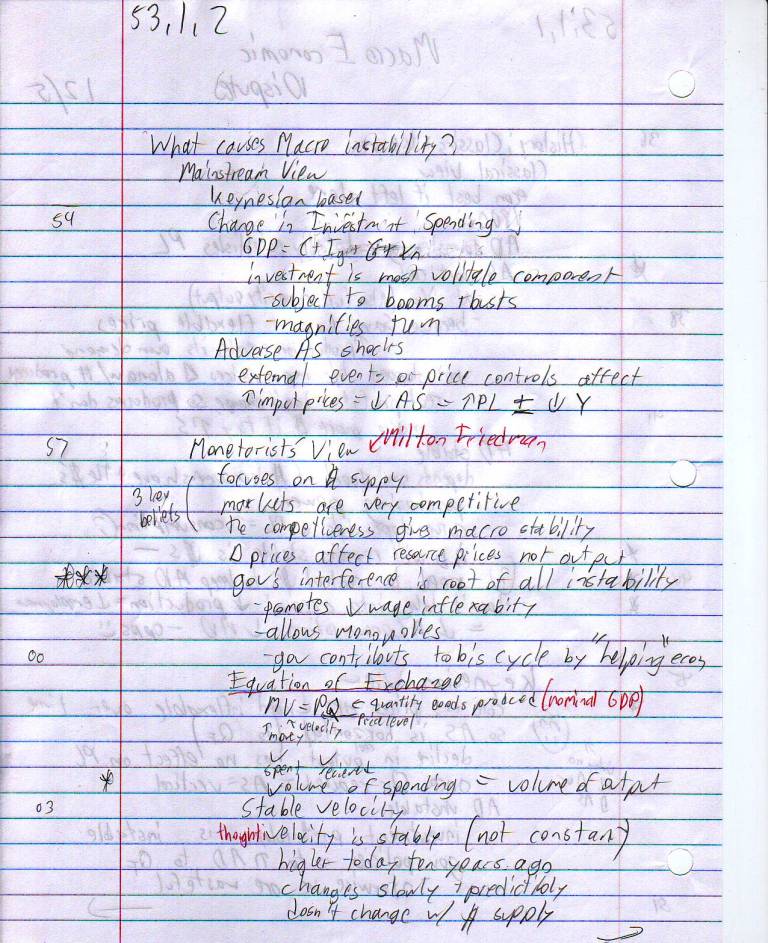 53,1,2
What causes Macro instability?
Mainstream View
Keynesian based
54 Change in Investment Spending ↓
GDP = C+Ig+G+Xn
investment is most volitale component
-subject to booms +busts
-magnifies them
Adverse AS shocks
external events or price controls affect
↑input prices = ↓AS = ↑PL ± ↓Y
57 Monetarists View ↙Milton Friedman
focuses on $ supply
3 key beliefs ( markets are very competitive
the competiveness gives macro stability
Δ prices affect resource prices not output
*** gov's interference is root of all instability
-pomotes ↓wage inflexabity
-allows monopolies
00 -gov contributs to bis cycle by "helping" econ
Equation of Exchange
MV = PQ ← quantity goods produced (nominal GDP)
↑money ↑velocity Price level
spent recieved
* volume of spending = volume of output
03 Stable velocity
thought velocity is stably (not constant)
higher today ten years ago
changes slowly + predictibly
dosn't change w/ $ supply